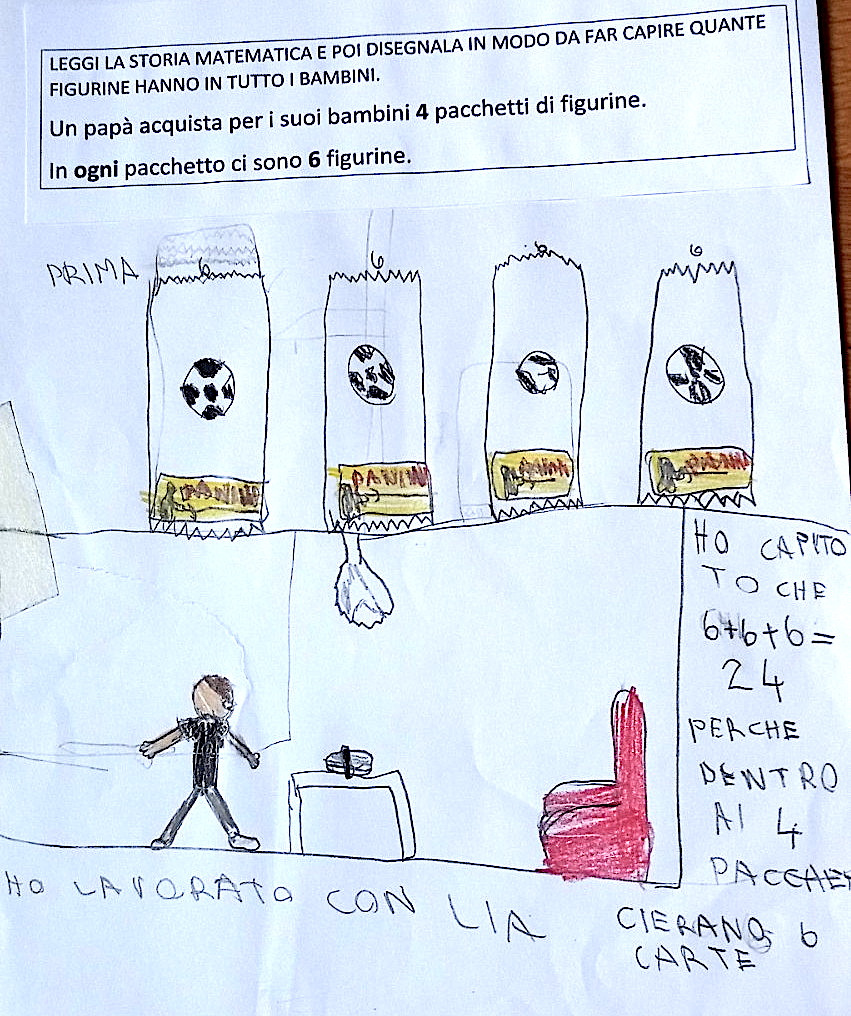 LEGGI LA STORIA MATEMATICA E POI DISEGNALA IN MODO DA FAR CAPIRE QUANTE
FIGURINE HANNO IN TUTTO I BAMBINI.
Un papà acquista per i suoi bambini 4 pacchetti di figurine.
In ogni pacchetto ci sono 6 figurine.
PRIMA
6 6 6 6
PANINI PANINI PANINI PANINI
HO CAPITO
TO CHE
6+6+6=
24
PERCHE
DENTRO
AI 4
PACCHET
CIERANO 6
CARTE
HO LAVORATO CON LIA